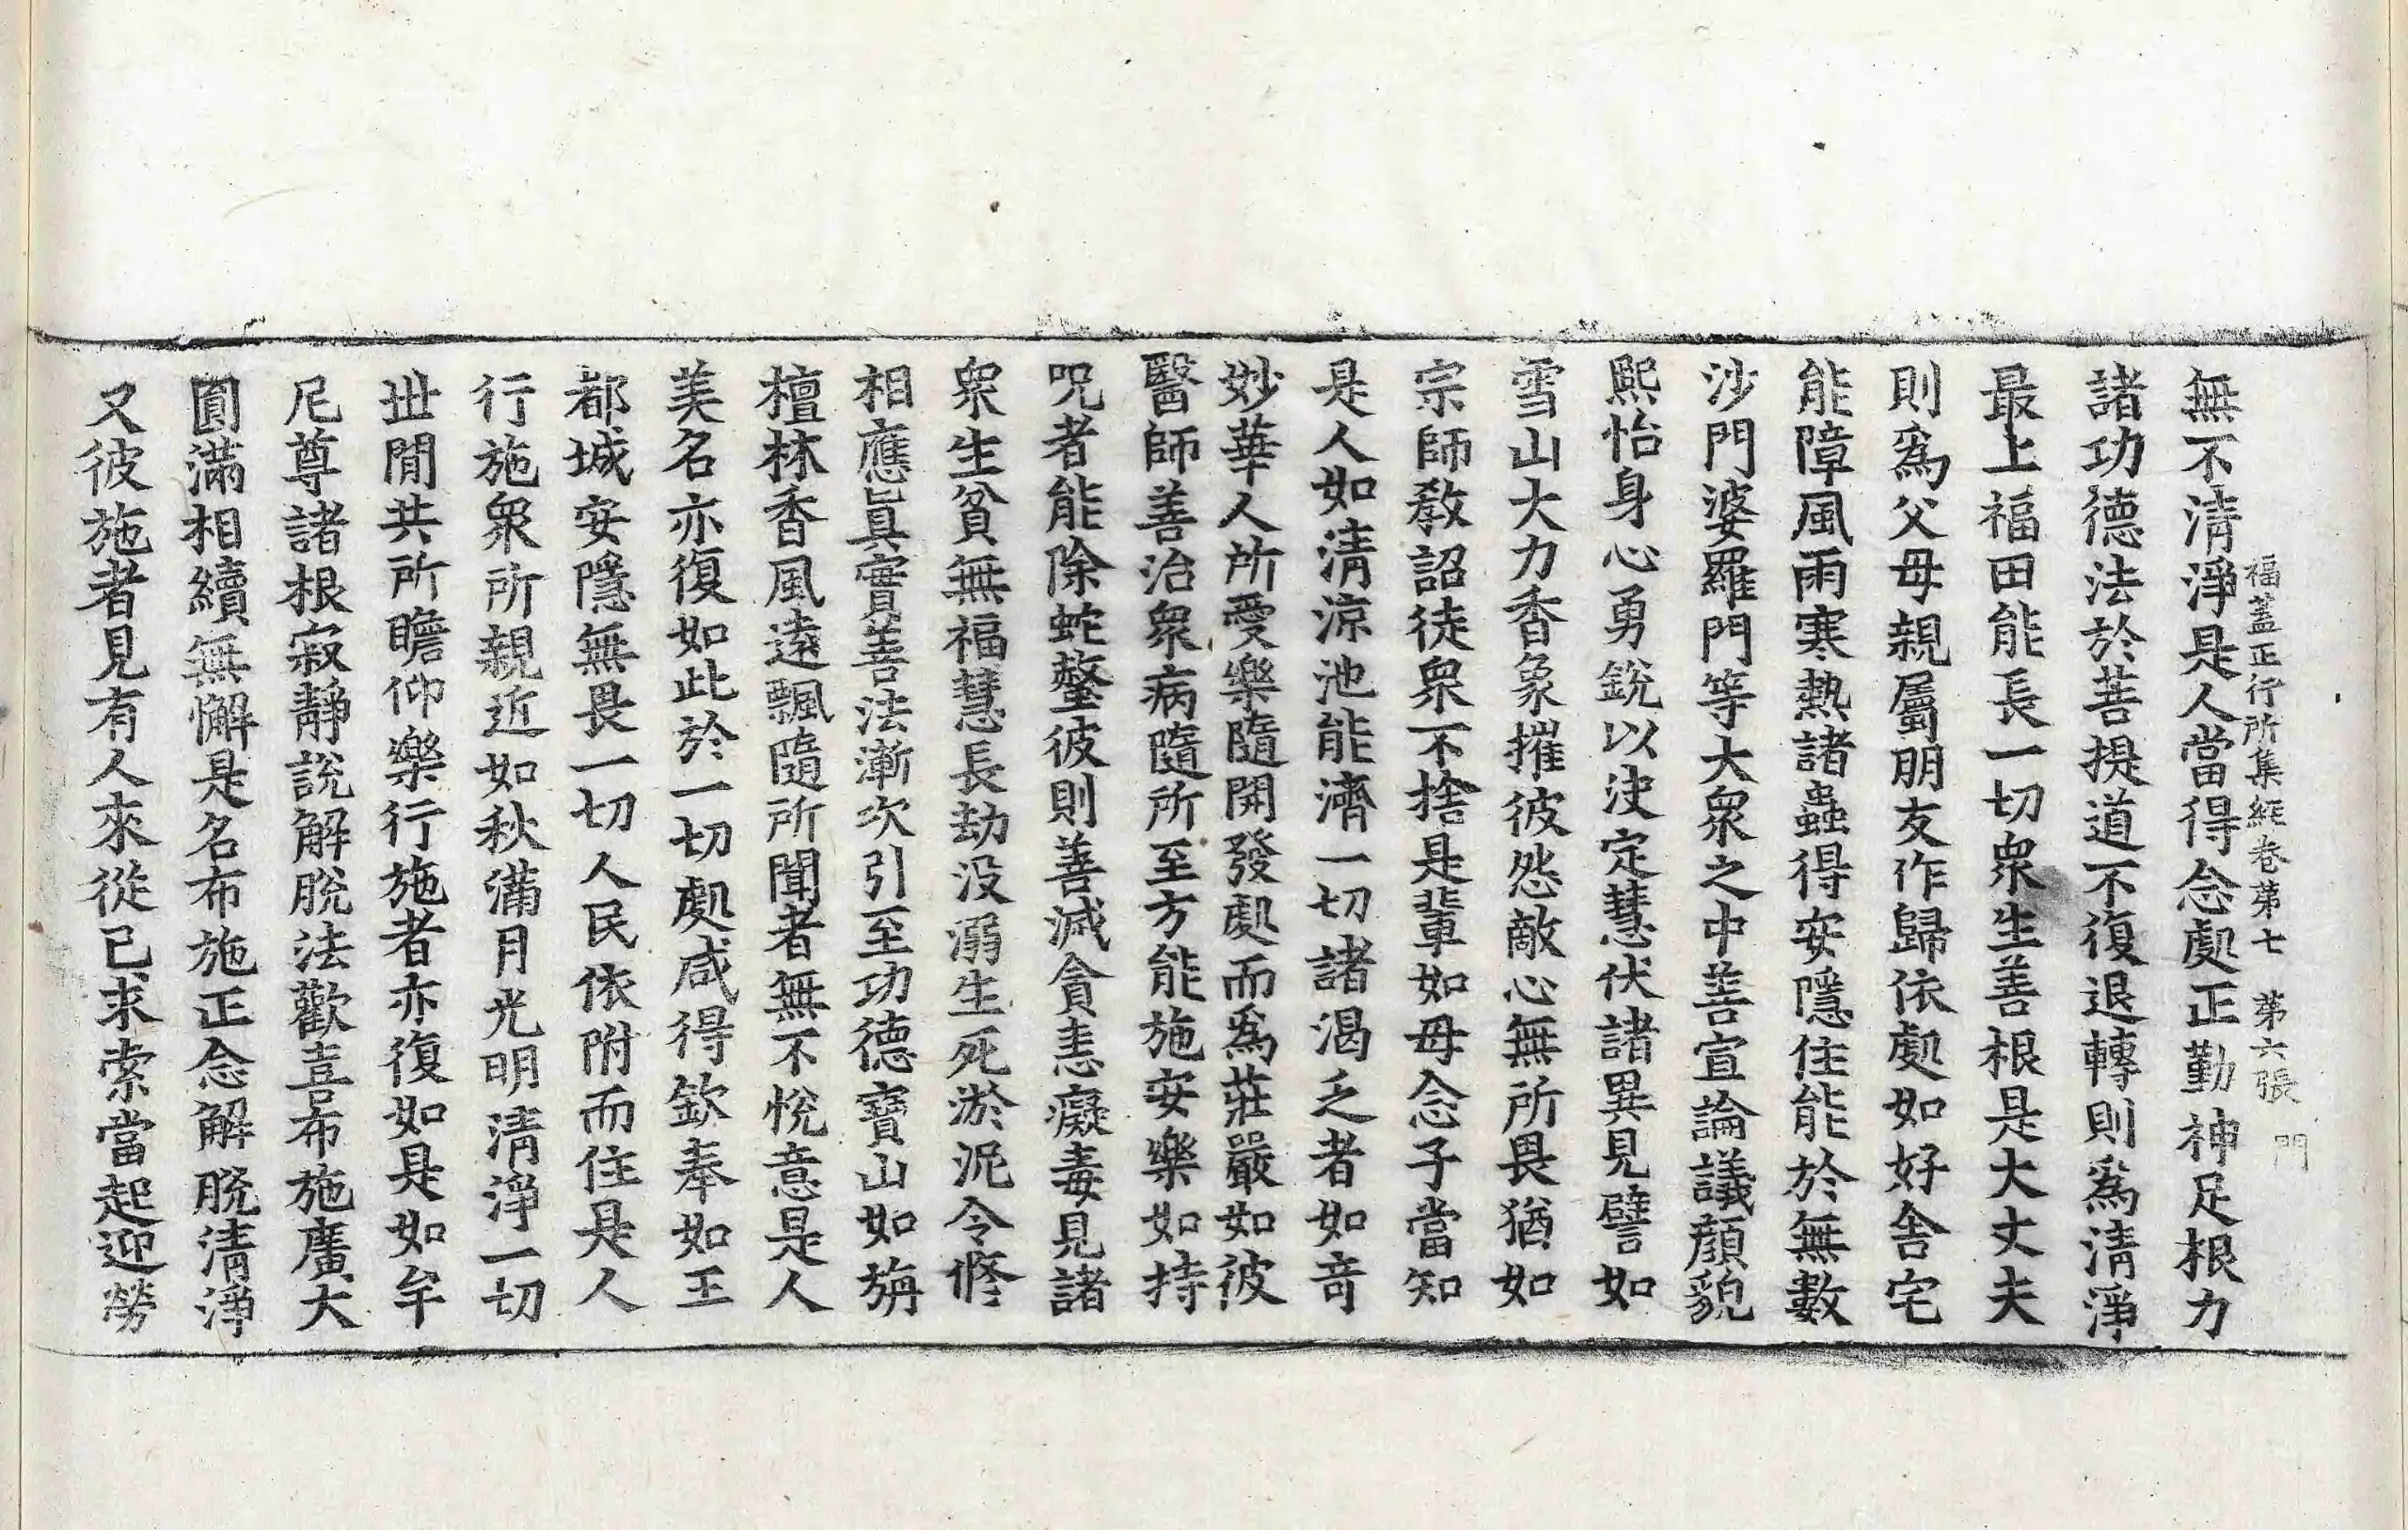 福蓋正行所集經卷第七 第六張 門
無不清淨是人當得念處正勤神足根力
諸功德法於菩提道不復退轉則爲清淨
最上福田能長一切衆生善根是大丈夫
則爲父母親屬朋友作歸依處如好舍宅
能障風雨寒熱諸蟲得安隱住能於無數
沙門婆羅門等大衆之中善宣論議顏貌
熙怡身心勇銳以決定慧伏諸異見譬如
雪山大力香象摧彼怨敵心無所畏猶如
宗師教詔徒衆不捨是輩如母念子當知
是人如清涼池能濟一切諸渴乏者如奇
妙華人所愛樂隨開發處而爲莊嚴如彼
醫師善治衆病隨所至方能施安樂如持
呪者能除蛇螫彼則善滅貪恚癡毒見諸
衆生貧無福慧長劫没溺生死淤泥令修
相應眞實善法漸次引至功德寶山如旃
檀林香風遠飄隨所聞者無不悅意是人
美名亦復如此於一切處咸得欽奉如王
都城安隱無畏一切人民依附而住是人
行施衆所親近如秋滿月光明清淨一切
世閒共所瞻仰樂行施者亦復如是如牟
尼尊諸根寂靜說解脫法歡喜布施廣大
圓滿相續無懈是名布施正念解脫清淨
又彼施者見有人來從己求索當起迎勞